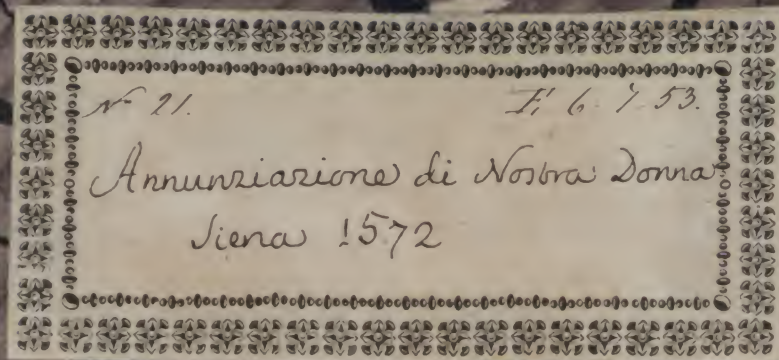 No 21. E. 6. 7. 53.
Annunziazione di Nostra Donna
Siena 1572